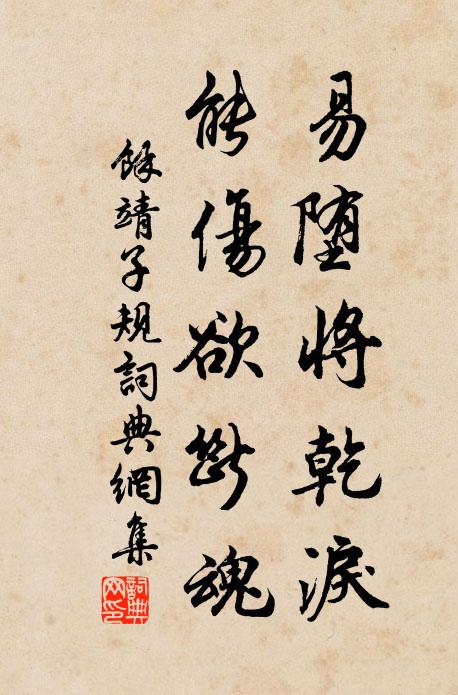 易堕將乾淚
能傷欲斷魂
餘靖子規詞典網集
詞典網印